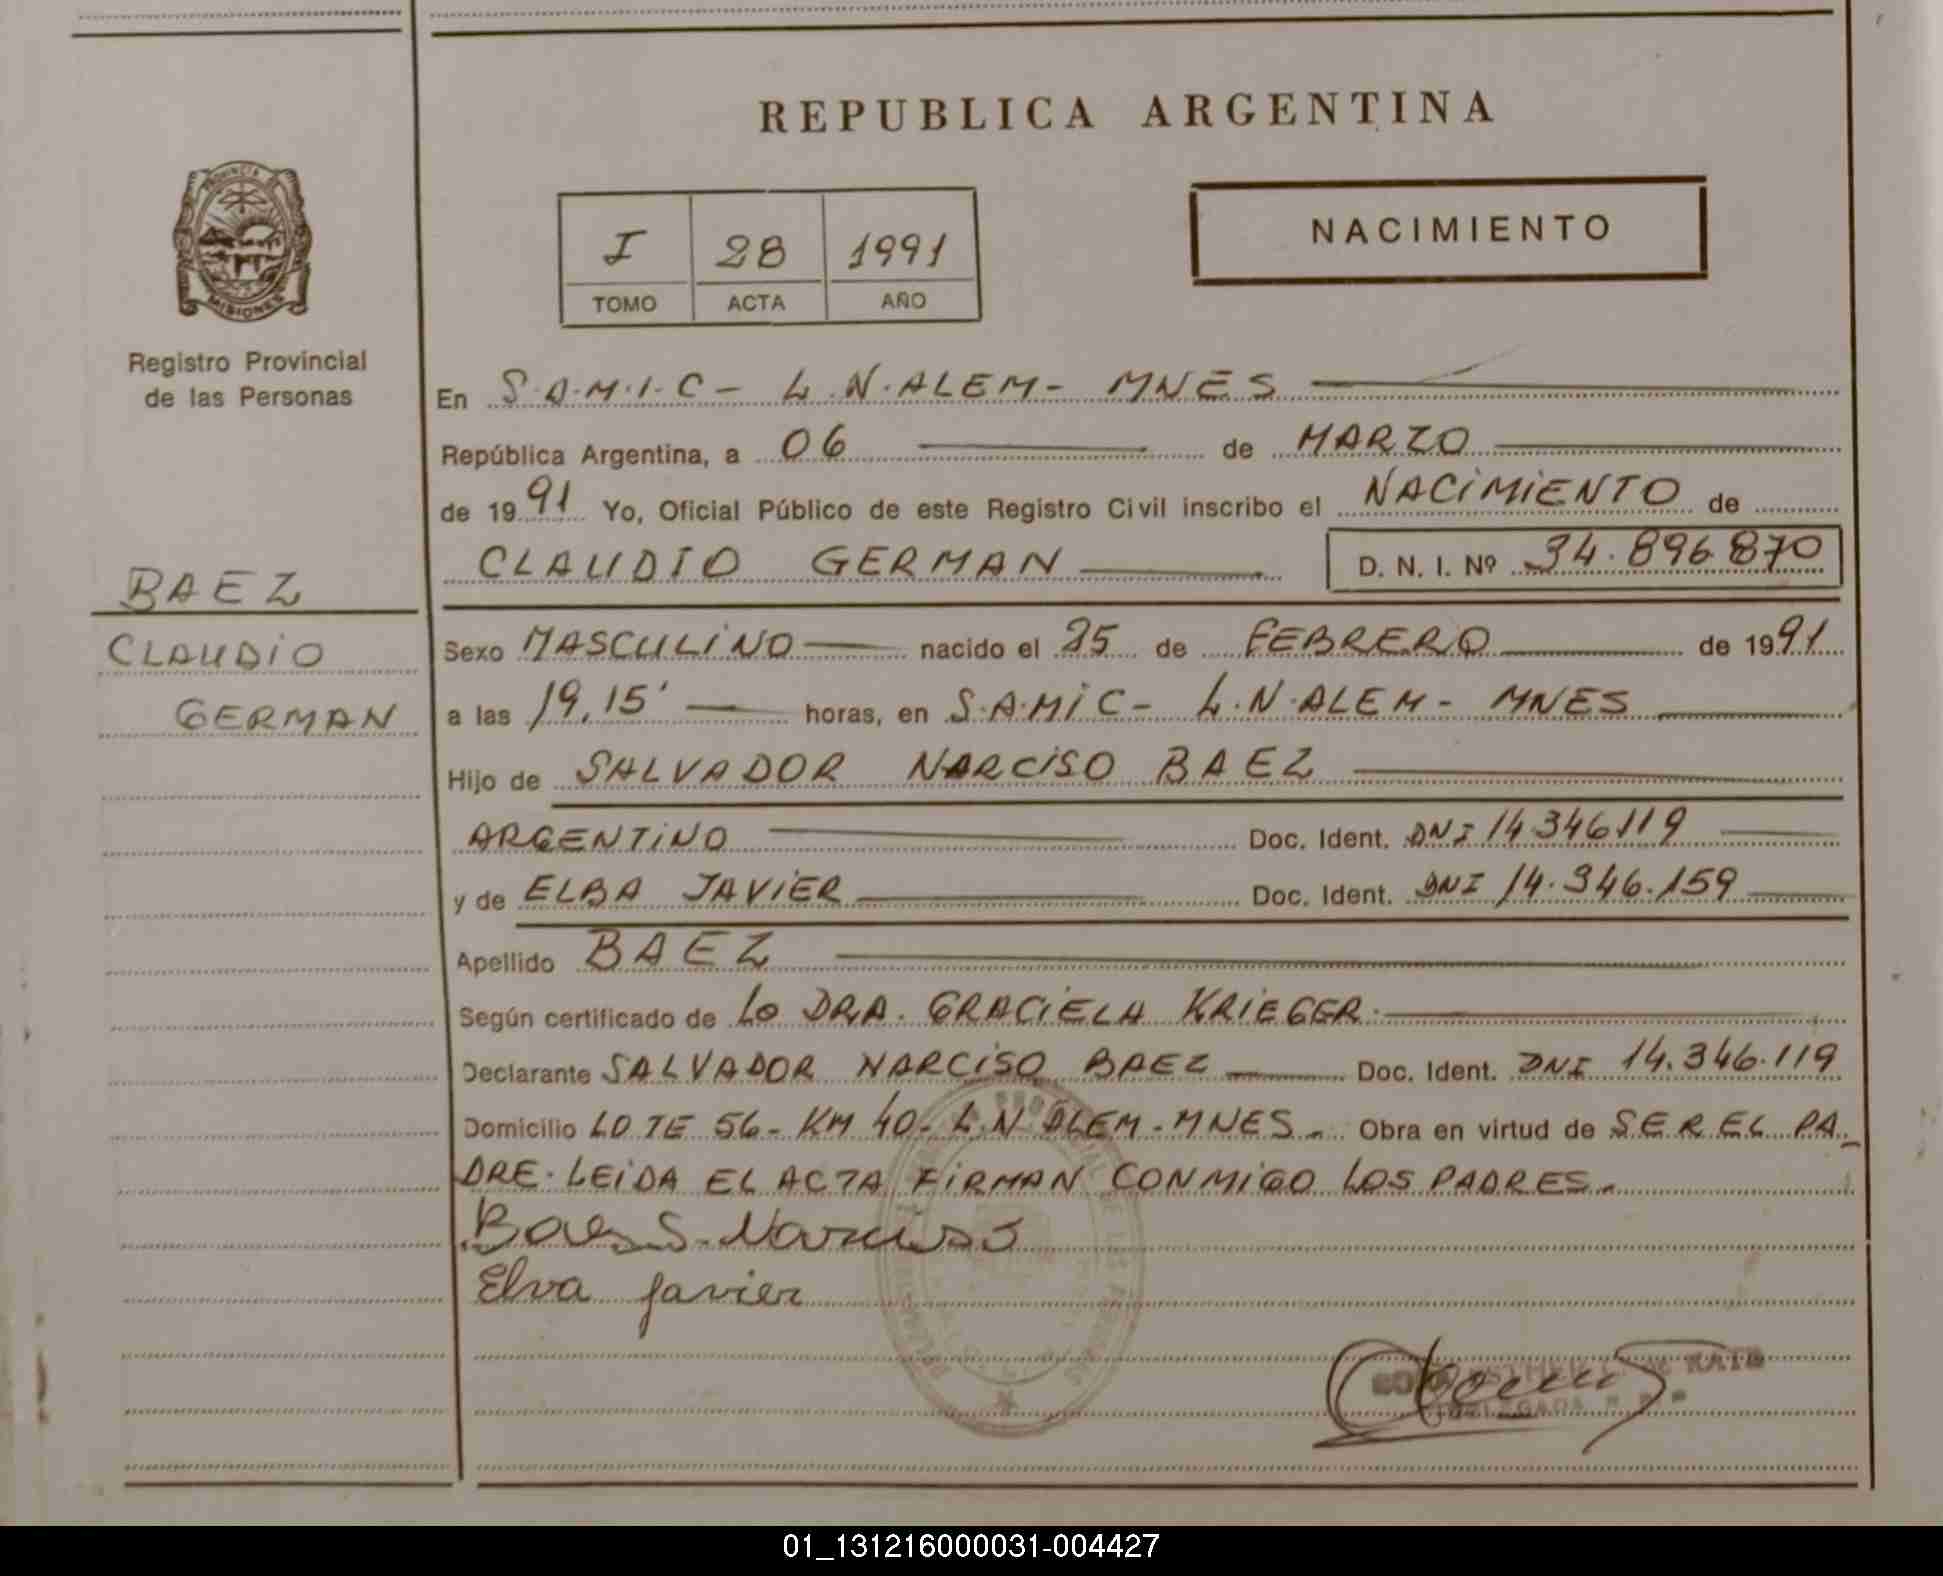 REPUBLICA ARGENTINA
PROVINCIA DE
MISIONES
Registro Provincial
de las Personas
I 28 1991
TOMO ACTA AÑO
NACIMIENTO
En S.A.M.I.C - L.N.ALEM - MNES
República Argentina, a 06 de MARZO
de 1991 Yo, Oficial Público de este Registro Civil inscribo el NACIMIENTO de
CLAUDIO GERMAN D. N. I. Nº 34.896.870
BAEZ
CLAUDIO
GERMAN
Sexo MASCULINO nacido el 25 de FEBRERO de 1991
a las 19,15' horas, en S.A.MIC - L.N.ALEM - MNES
Hijo de SALVADOR NARCISO BAEZ
ARGENTINO Doc. Ident. DNI 14.346.119
y de ELBA JAVIER Doc. Ident. DNI 14.346.159
Apellido BAEZ
Según certificado de Lo DRA. GRACIELA KRIEGER.
Declarante SALVADOR NARCISO BAEZ Doc. Ident. DNI 14.346.119
Domicilio LOTE 56 - KM 40 - L.N ALEM - MNES - Obra en virtud de SER EL PA_
DRE. LEIDA EL ACTA FIRMAN CONMIGO LOS PADRES.
Baes S. Narciso
Elva Javier
01_131216000031-004427